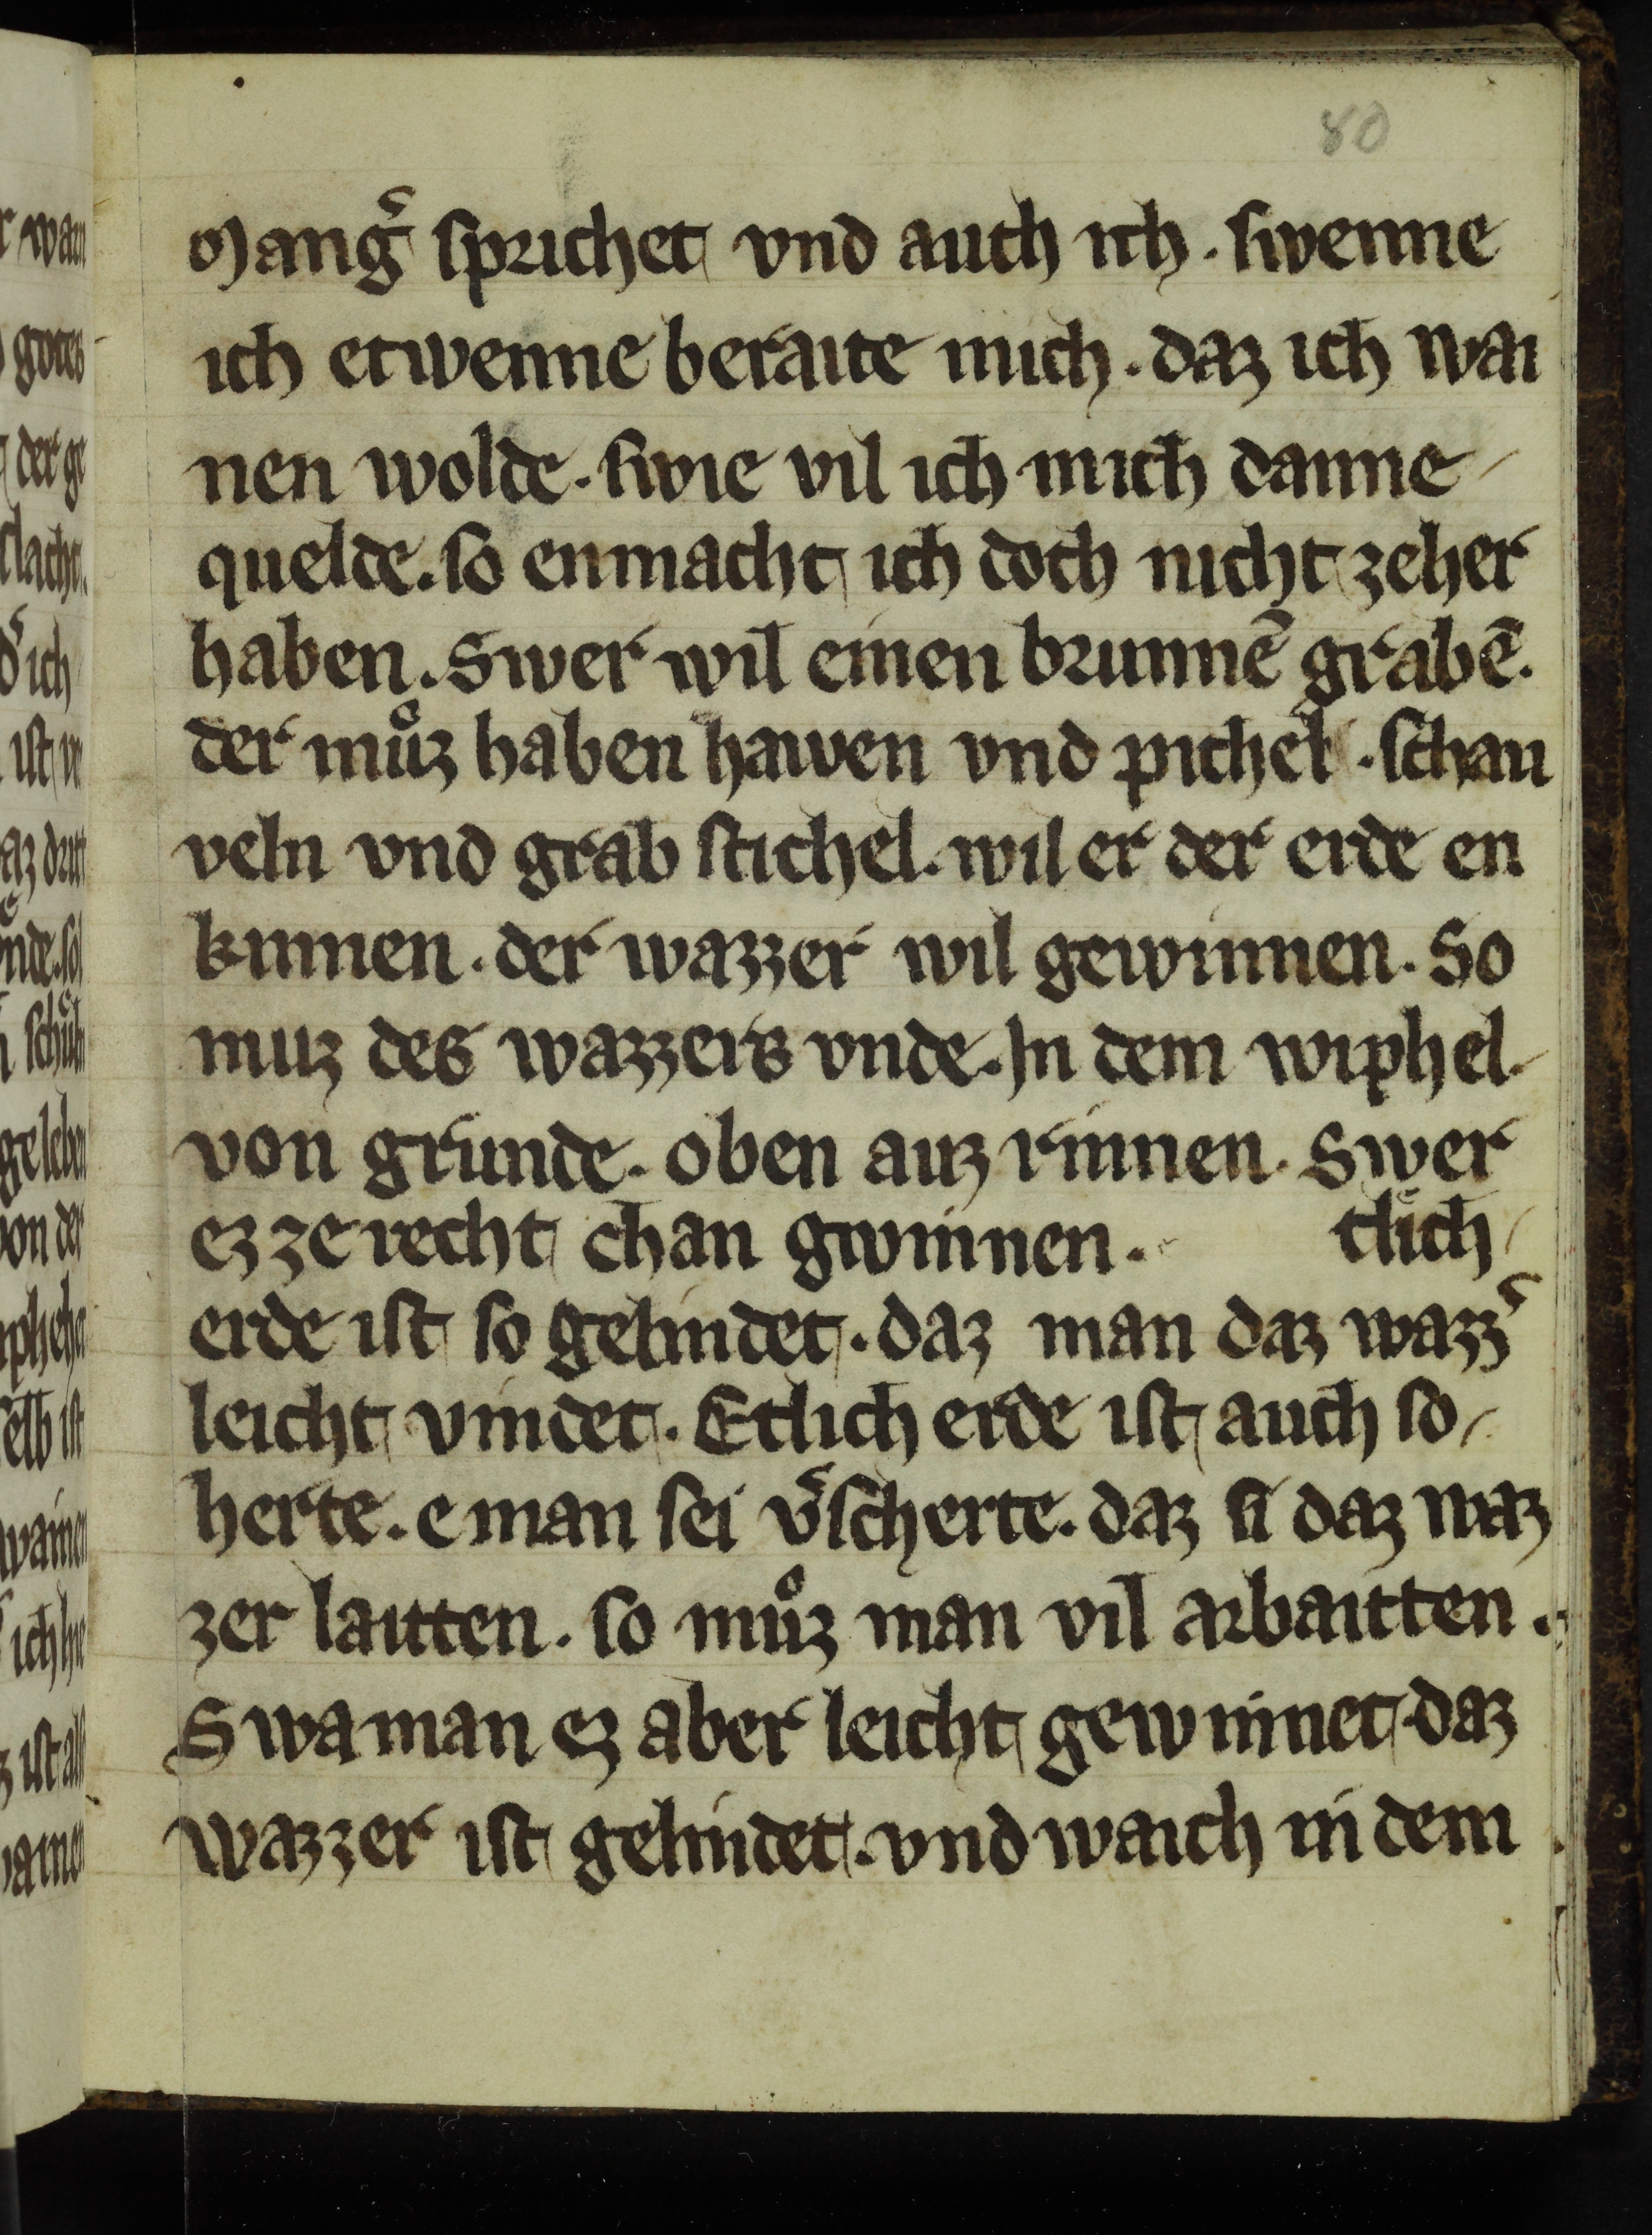 80
Mang᷑ sprichet vnd auch ich . swenne
ich etwenne beraite mich . daz ich wai
nen wolde . swie vil ich mich danne
quelde . so enmacht ich doch nicht zeher
haben . Swer wil einen brunnē grabē .
der muͦz haben hawen vnd pichel . schau
veln vnd grab stichel . wil er der erde en
kinnen . der wazzer wil gewinnen . So
muz des wazzers vnde . In dem wiphel
von grunde . oben auz rinnen . Swer
ez ze recht chan gwinnen . tlich
erde ist so gelindet . daz man daz wazz᷑
leicht vindet . Etlich erde ist auch so
herte . e man sei v᷑scherte . daz si daz waz
zer laitten . so muͦz man vil arbaitten .
Swa man ez aber leicht gewinnet . daz
wazzer ist gelindet . vnd waich in dem